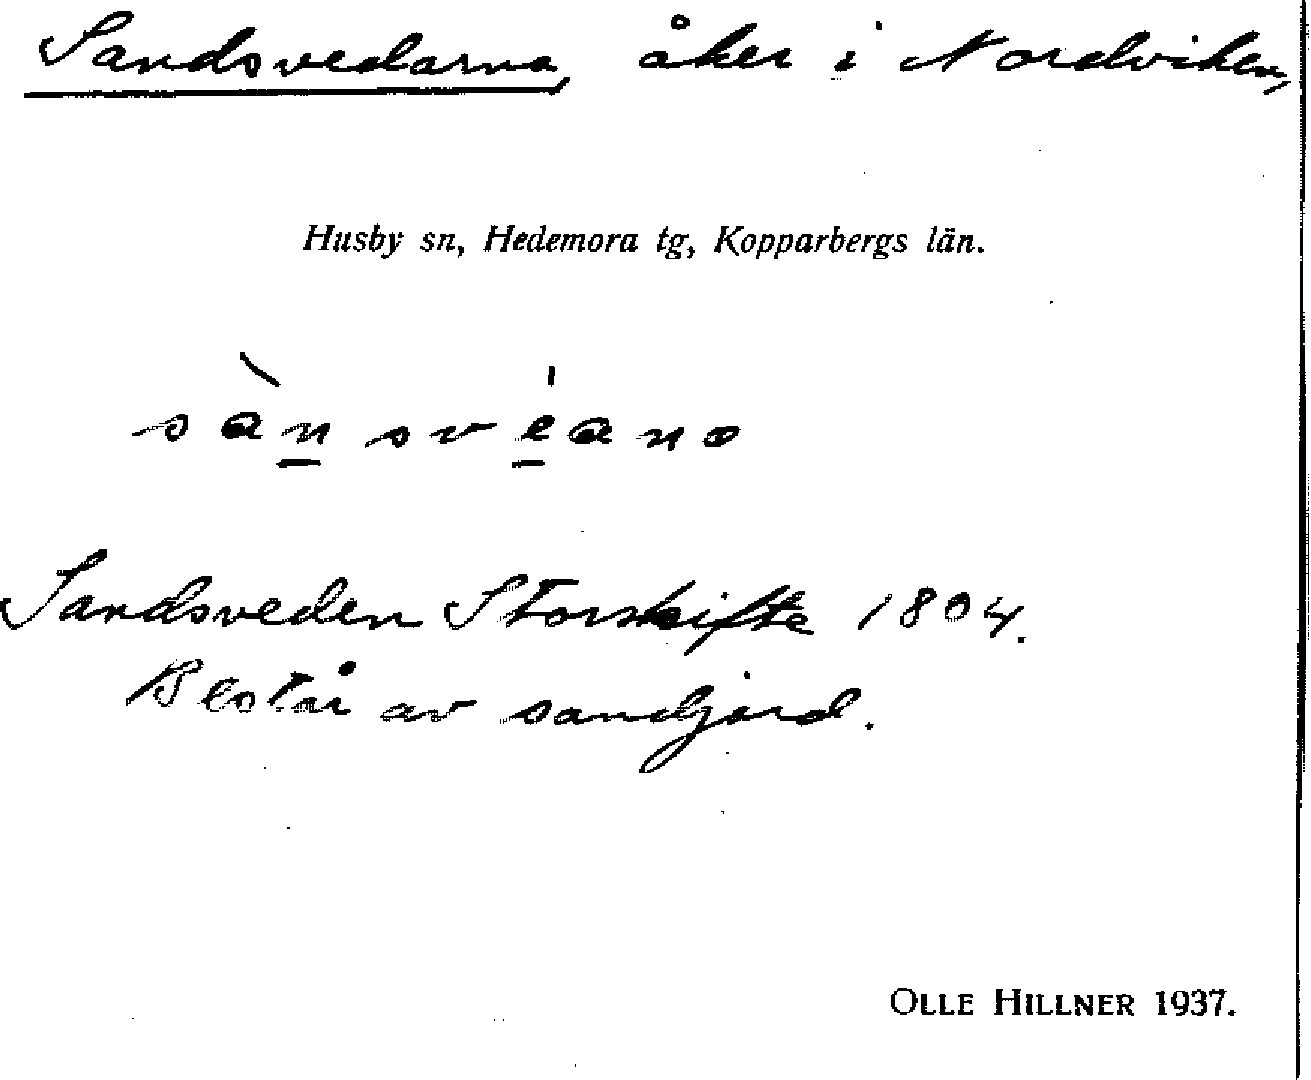 Sandsvedarna, åker i Nordviken,
Husby sn, Hedemora tg, Kopparbergs län.
sànsvéano
Sandsveden Storskifte 1804.
Består av sandjord.
OLLE HILLNER 1937.